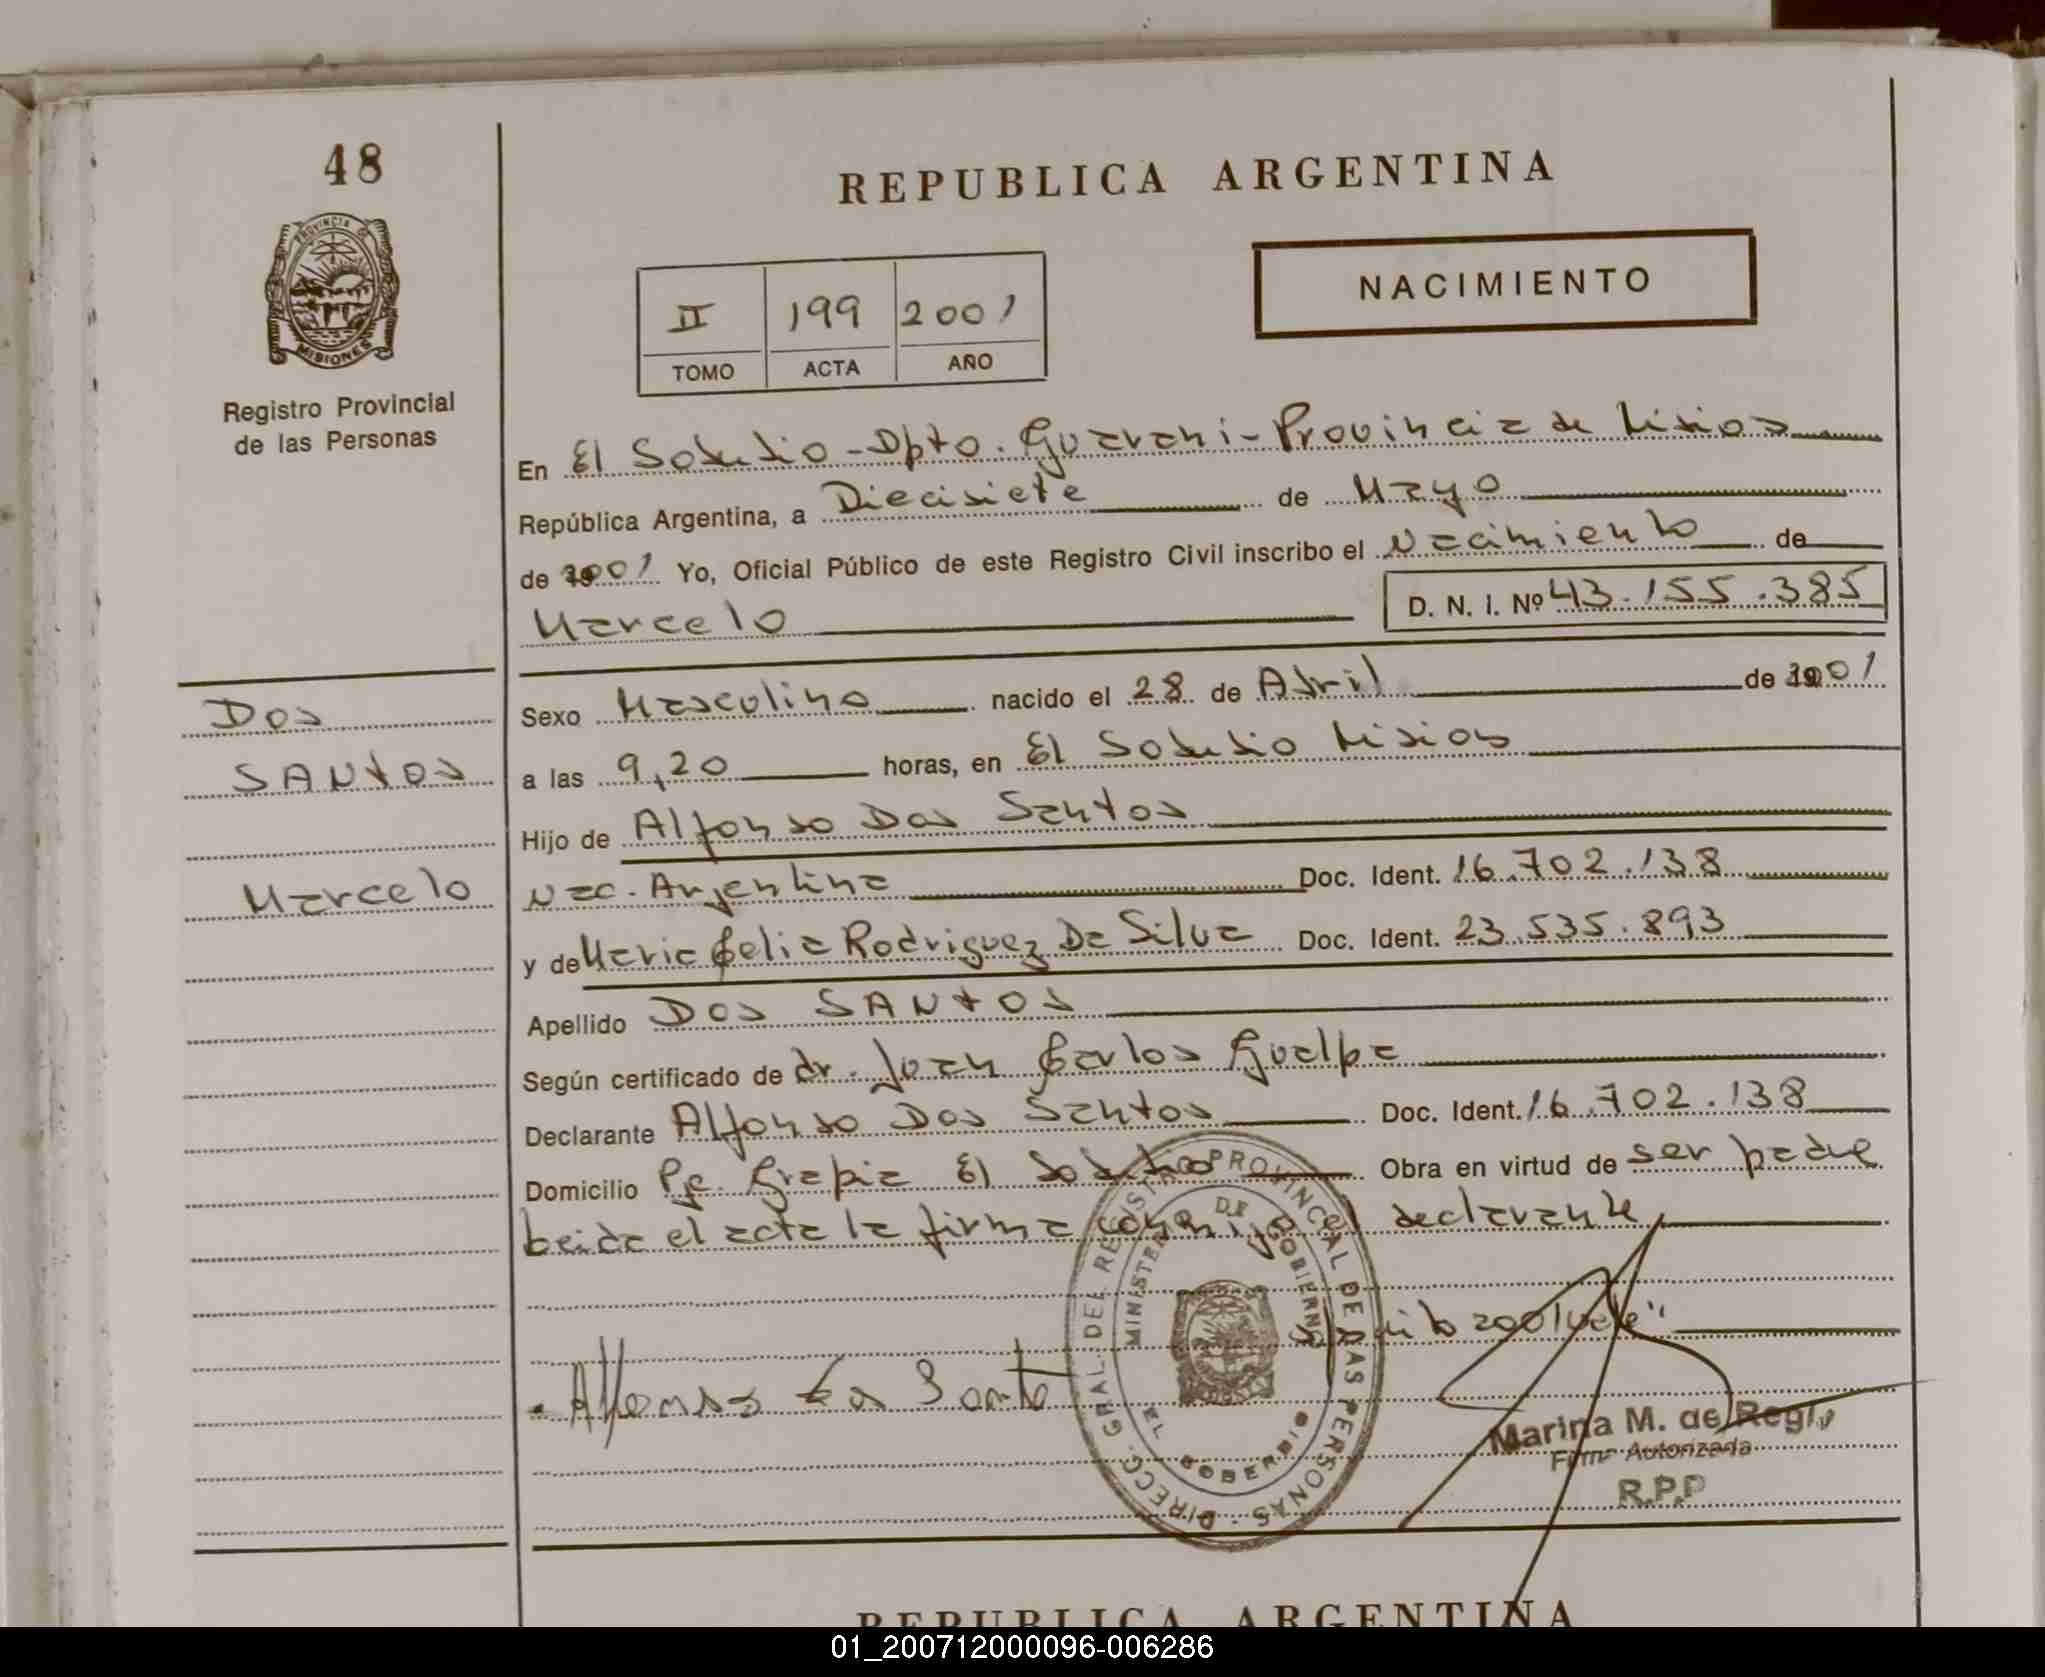 48
PROVINCIA DE
MISIONES
Registro Provincial
de las Personas
REPUBLICA ARGENTINA
NACIMIENTO
II 199 2001
TOMO ACTA AÑO
En El Soberbio - Dpto. Guarani - Provincia de Misiones
República Argentina, a Diecisiete de Mayo
de 2001 Yo, Oficial Público de este Registro Civil inscribo el Nacimiento de
Marcelo D. N. I. Nº 43.155.385
Dos
SANtos
Marcelo
Sexo Masculino nacido el 28 de Abril de 2001
a las 9,20 horas, en El Soberbio Misiones
Hijo de Alfonso Dos Santos
Nac. Argentina Doc. Ident. 16.702.138
y de Maria Celia Rodriguez Da Silva Doc. Ident. 23.535.893
Apellido Dos SANtos
Según certificado de dr. Juan Carlos Guelpa
Declarante Alfonso Dos Santos Doc. Ident. 16.702.138
Domicilio Pje. Grapia El Soberbio Obra en virtud de ser padre
Leida el acta la firma conmigo el declarante
2001 vale"
Marina M. de Regly
Firma Autorizada
R.P.P
DIRECC. GRAL. DEL REGISTRO PROVINCIAL DE LAS PERSONAS
MINISTERIO DE GOBIERNO
EL SOBERBIO
REPUBLICA ARGENTINA
01_200712000096-006286